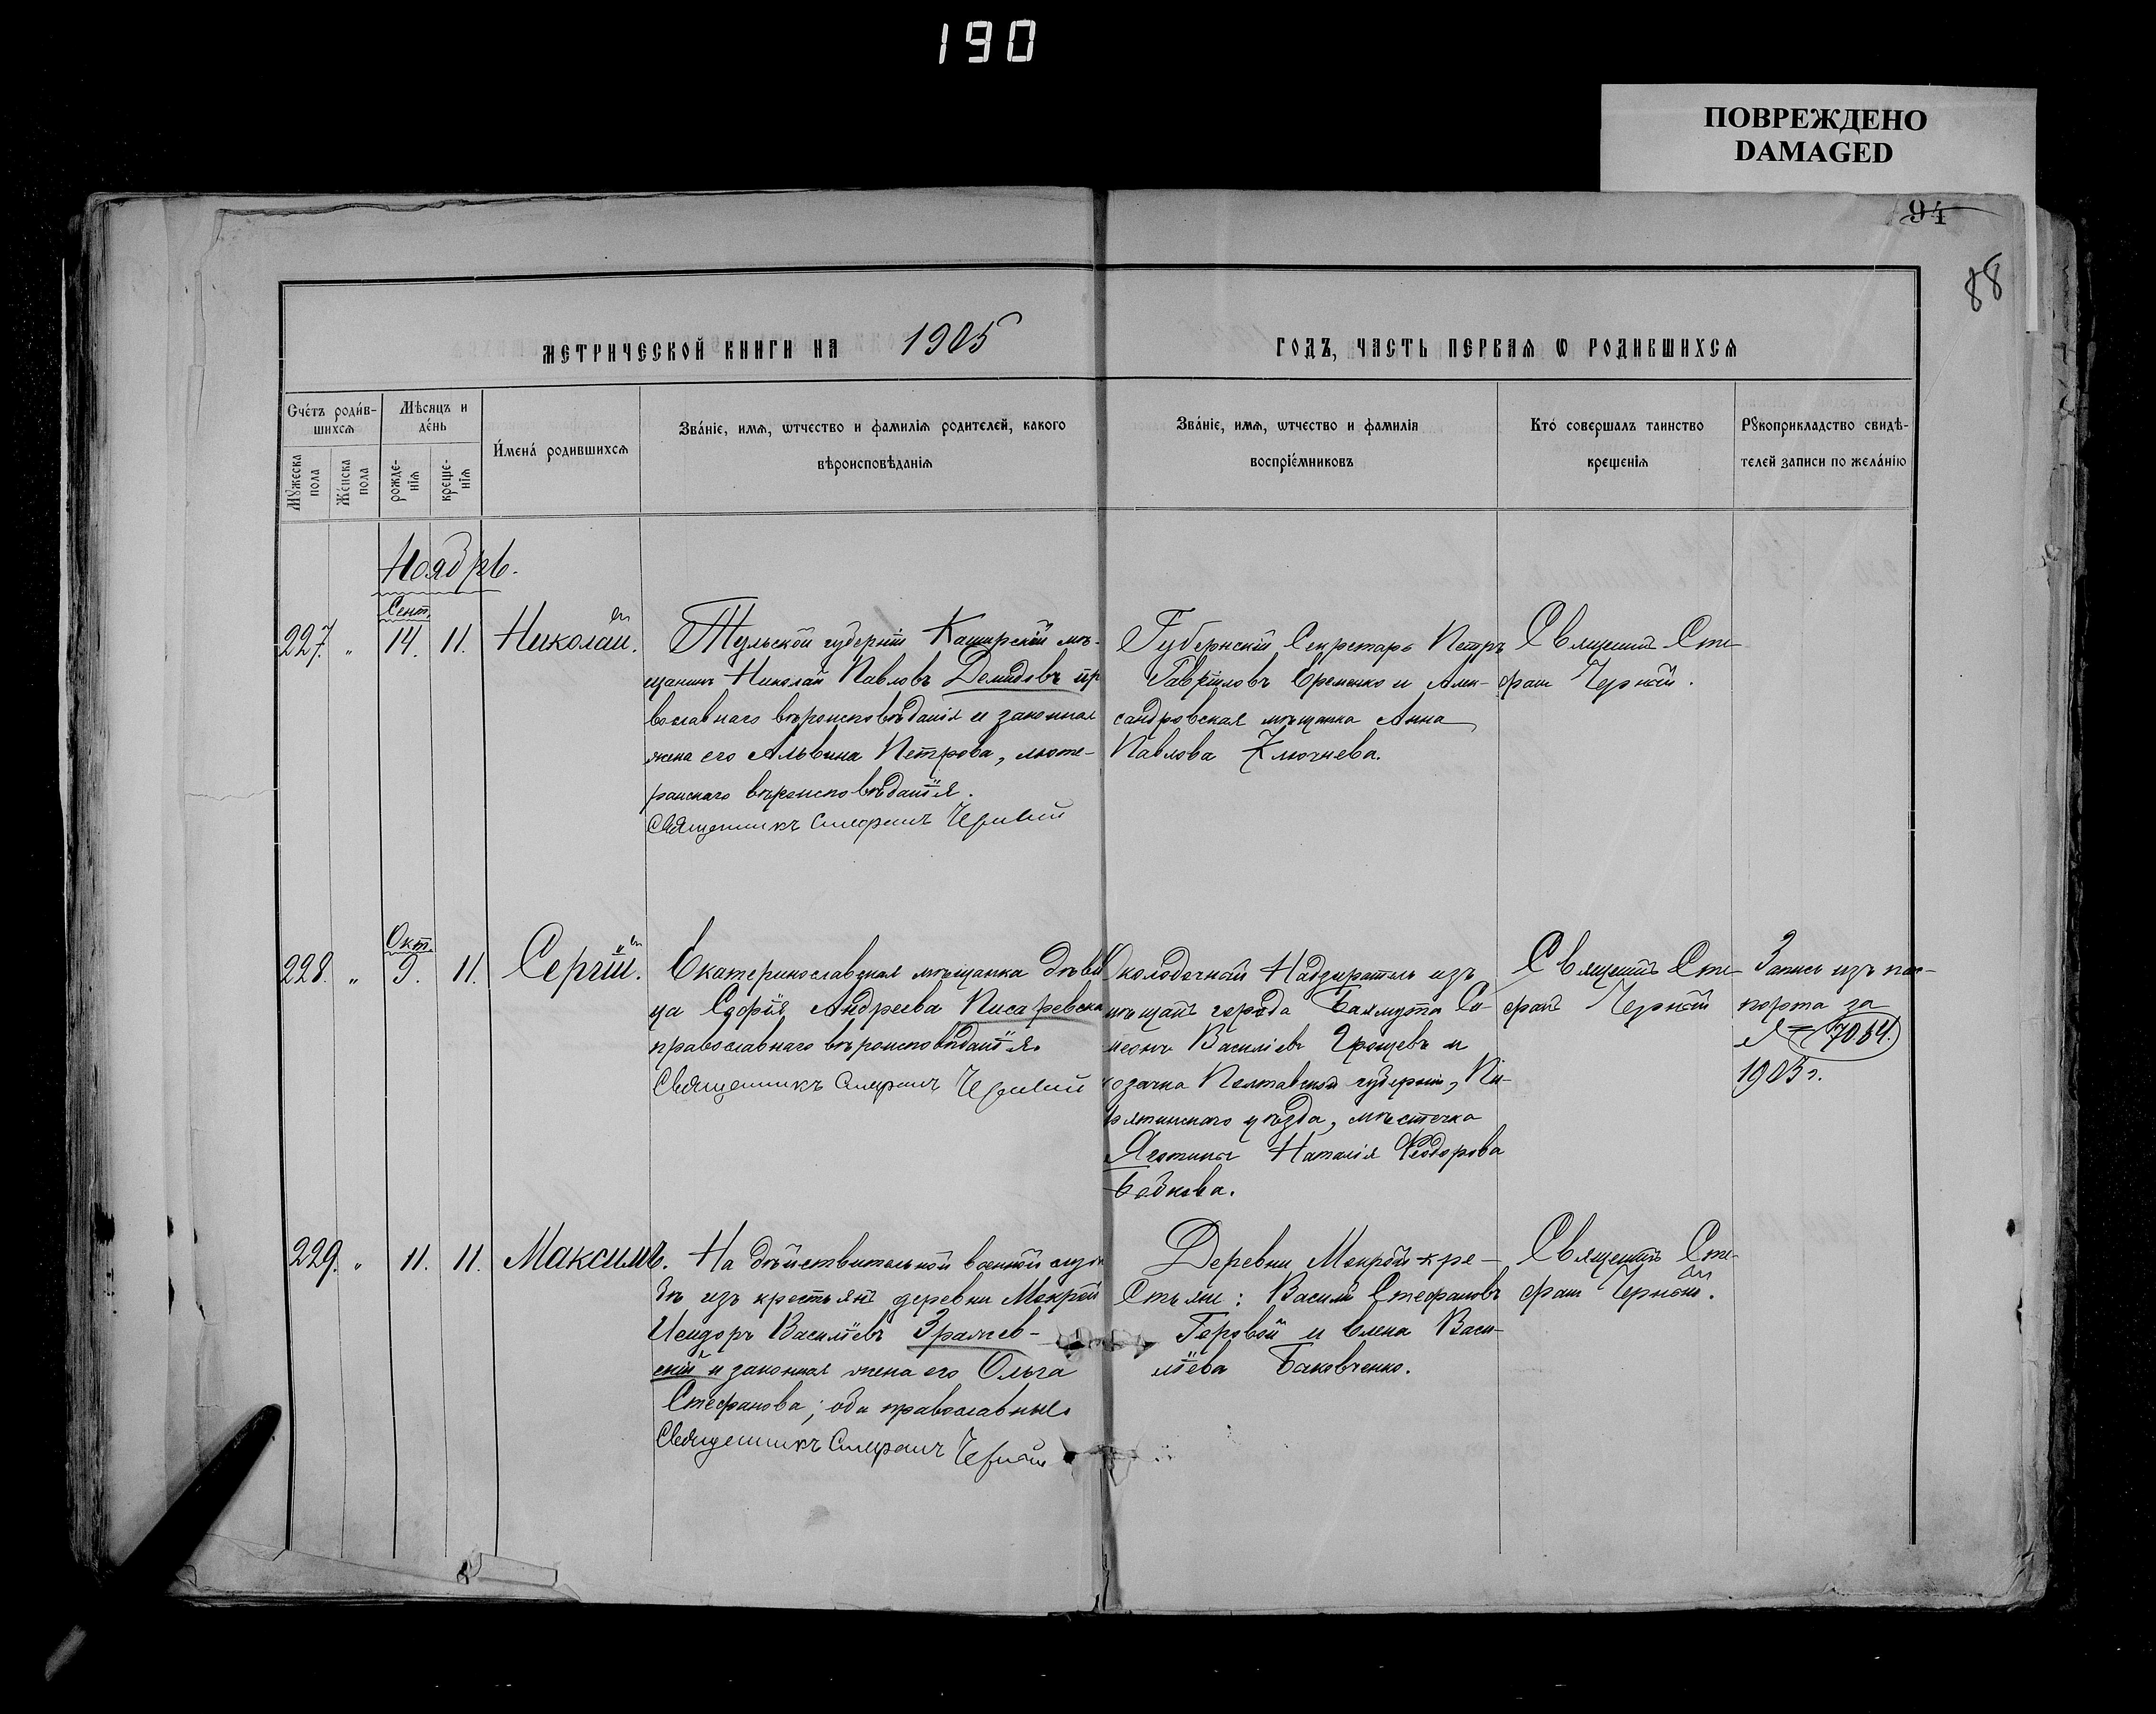 190
ПОВРЕЖДЕНО
DAMAGED
94
88
МЕТРИЧЕСКОЙ КНИГИ НА 1905 ГОДЪ, ЧАСТЬ ПЕРВАѦ Ѡ РОДИВШИХСѦ
Счетъ родив-
шихсѧ
Мꙋжеска пола
Женска пола
Мѣсяцъ и
день
рожде-
нія
креще-
нія
Имена родившихсѧ
Званіе, имѧ, ѡтчество и фамиліѧ родителей, какого
вѣроисповѣданіѧ
Званіе, имѧ, ѡтчество и фамиліѧ
воспріемниковъ
Кто совершалъ таинство
крещеніѧ
Рꙋкоприкладство свидѣ-
телей записи по желанію
Ноябрь.
Сент.
227. " 14. 11. Николай.
Тульской губерніи Каширскій мѣ-
щанинъ Николай Павловъ Демидовъ пр
вославнаго вѣроисповѣданія и законная
жена его Альвина Петрова, люте-
ранскаго вѣроисповѣданія.
Священникъ Стефанъ Черный
Губернскій Секретарь Петръ
Гавріиловъ Еременко и Алек-
сандровская мѣщанка Анна
Павлова Ключнева.
Священ. Сте-
фан Черный.
Окт.
228. " 9. 11. Сергій.
Екатеринославская мѣщанка дѣви
ца Софія Андреева Писаревска
православнаго вѣроисповѣданія.
Священникъ Стефанъ Черный
Околодочный Надзиратель изъ
мѣщанъ города Бахмута Си-
меонъ Василіевъ Грощевъ и
козачка Полтавской губерніи, Пи-
рятинскаго уѣзда, мѣстечка
Яготина Наталія Ѳеодорова
Бойкова.
Священ. Сте-
фан Черный
Запись изъ пас-
порта за
№ 7084.
1905 г.
229. " 11. 11. Максимъ.
На дѣйствительной военной служ
бѣ изъ крестьянъ деревни Мокрой
Исидоръ Василіевъ Зрачев-
скій и законная жена его Ольга
Стефанова; оба православные.
Священникъ Стефанъ Черный
Деревни Мокрой кре-
стьяне: Василій Стефановъ
Горовой и Елена Васи-
ліева Баковченко.
Священ. Сте-
фан Черный.